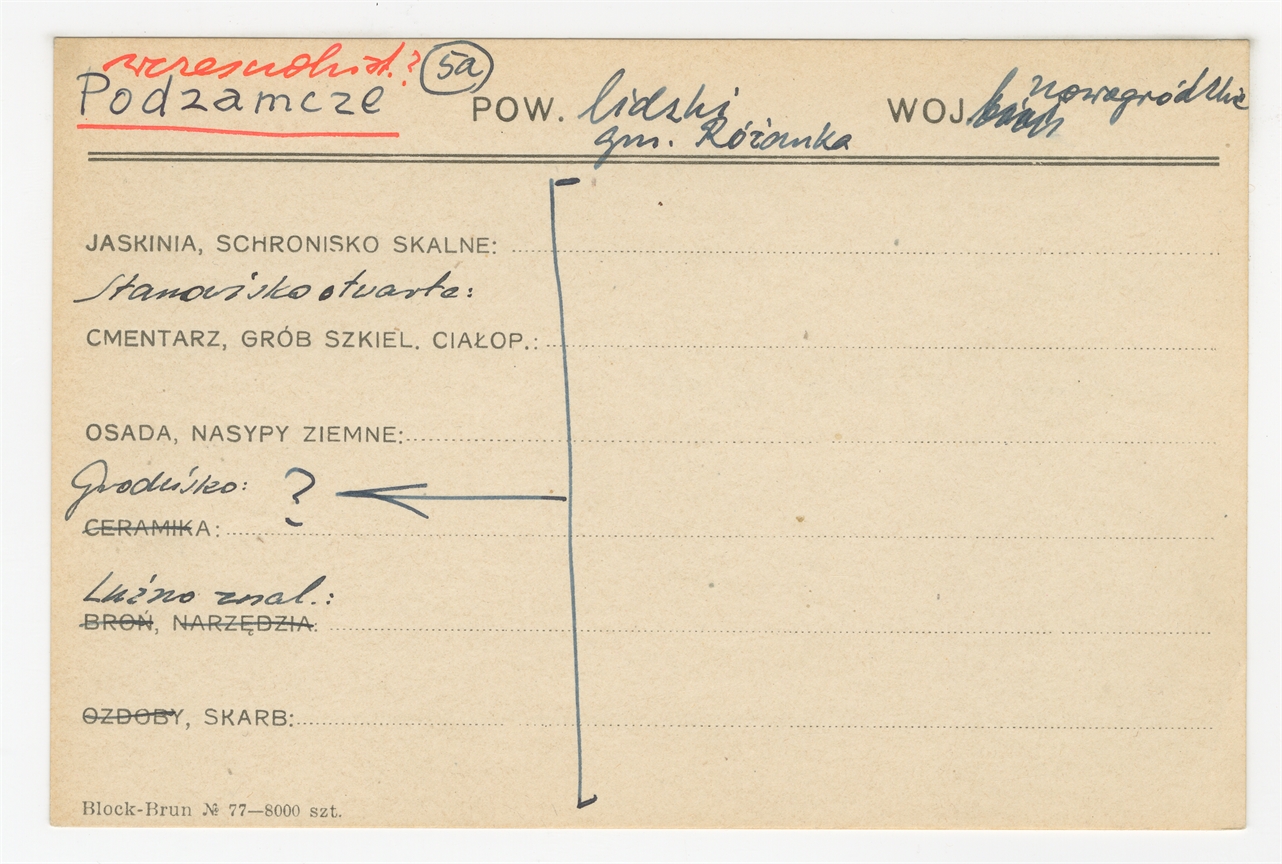 wczesnohist.? 5a
Podzamcze POW. lidzki WOJ. nowogródzkie
gm. Różanka
JASKINIA, SCHRONISKO SKALNE:
Stanowisko otwarte:
CMENTARZ, GRÓB SZKIEL. CIAŁOP.:
OSADA, NASYPY ZIEMNE:
Grodzisko: ?
CERAMIKA:
Luźno znal.:
BROŃ, NARZĘDZIA:
OZDOBY, SKARB:
Block-Brun № 77—8000 szt.